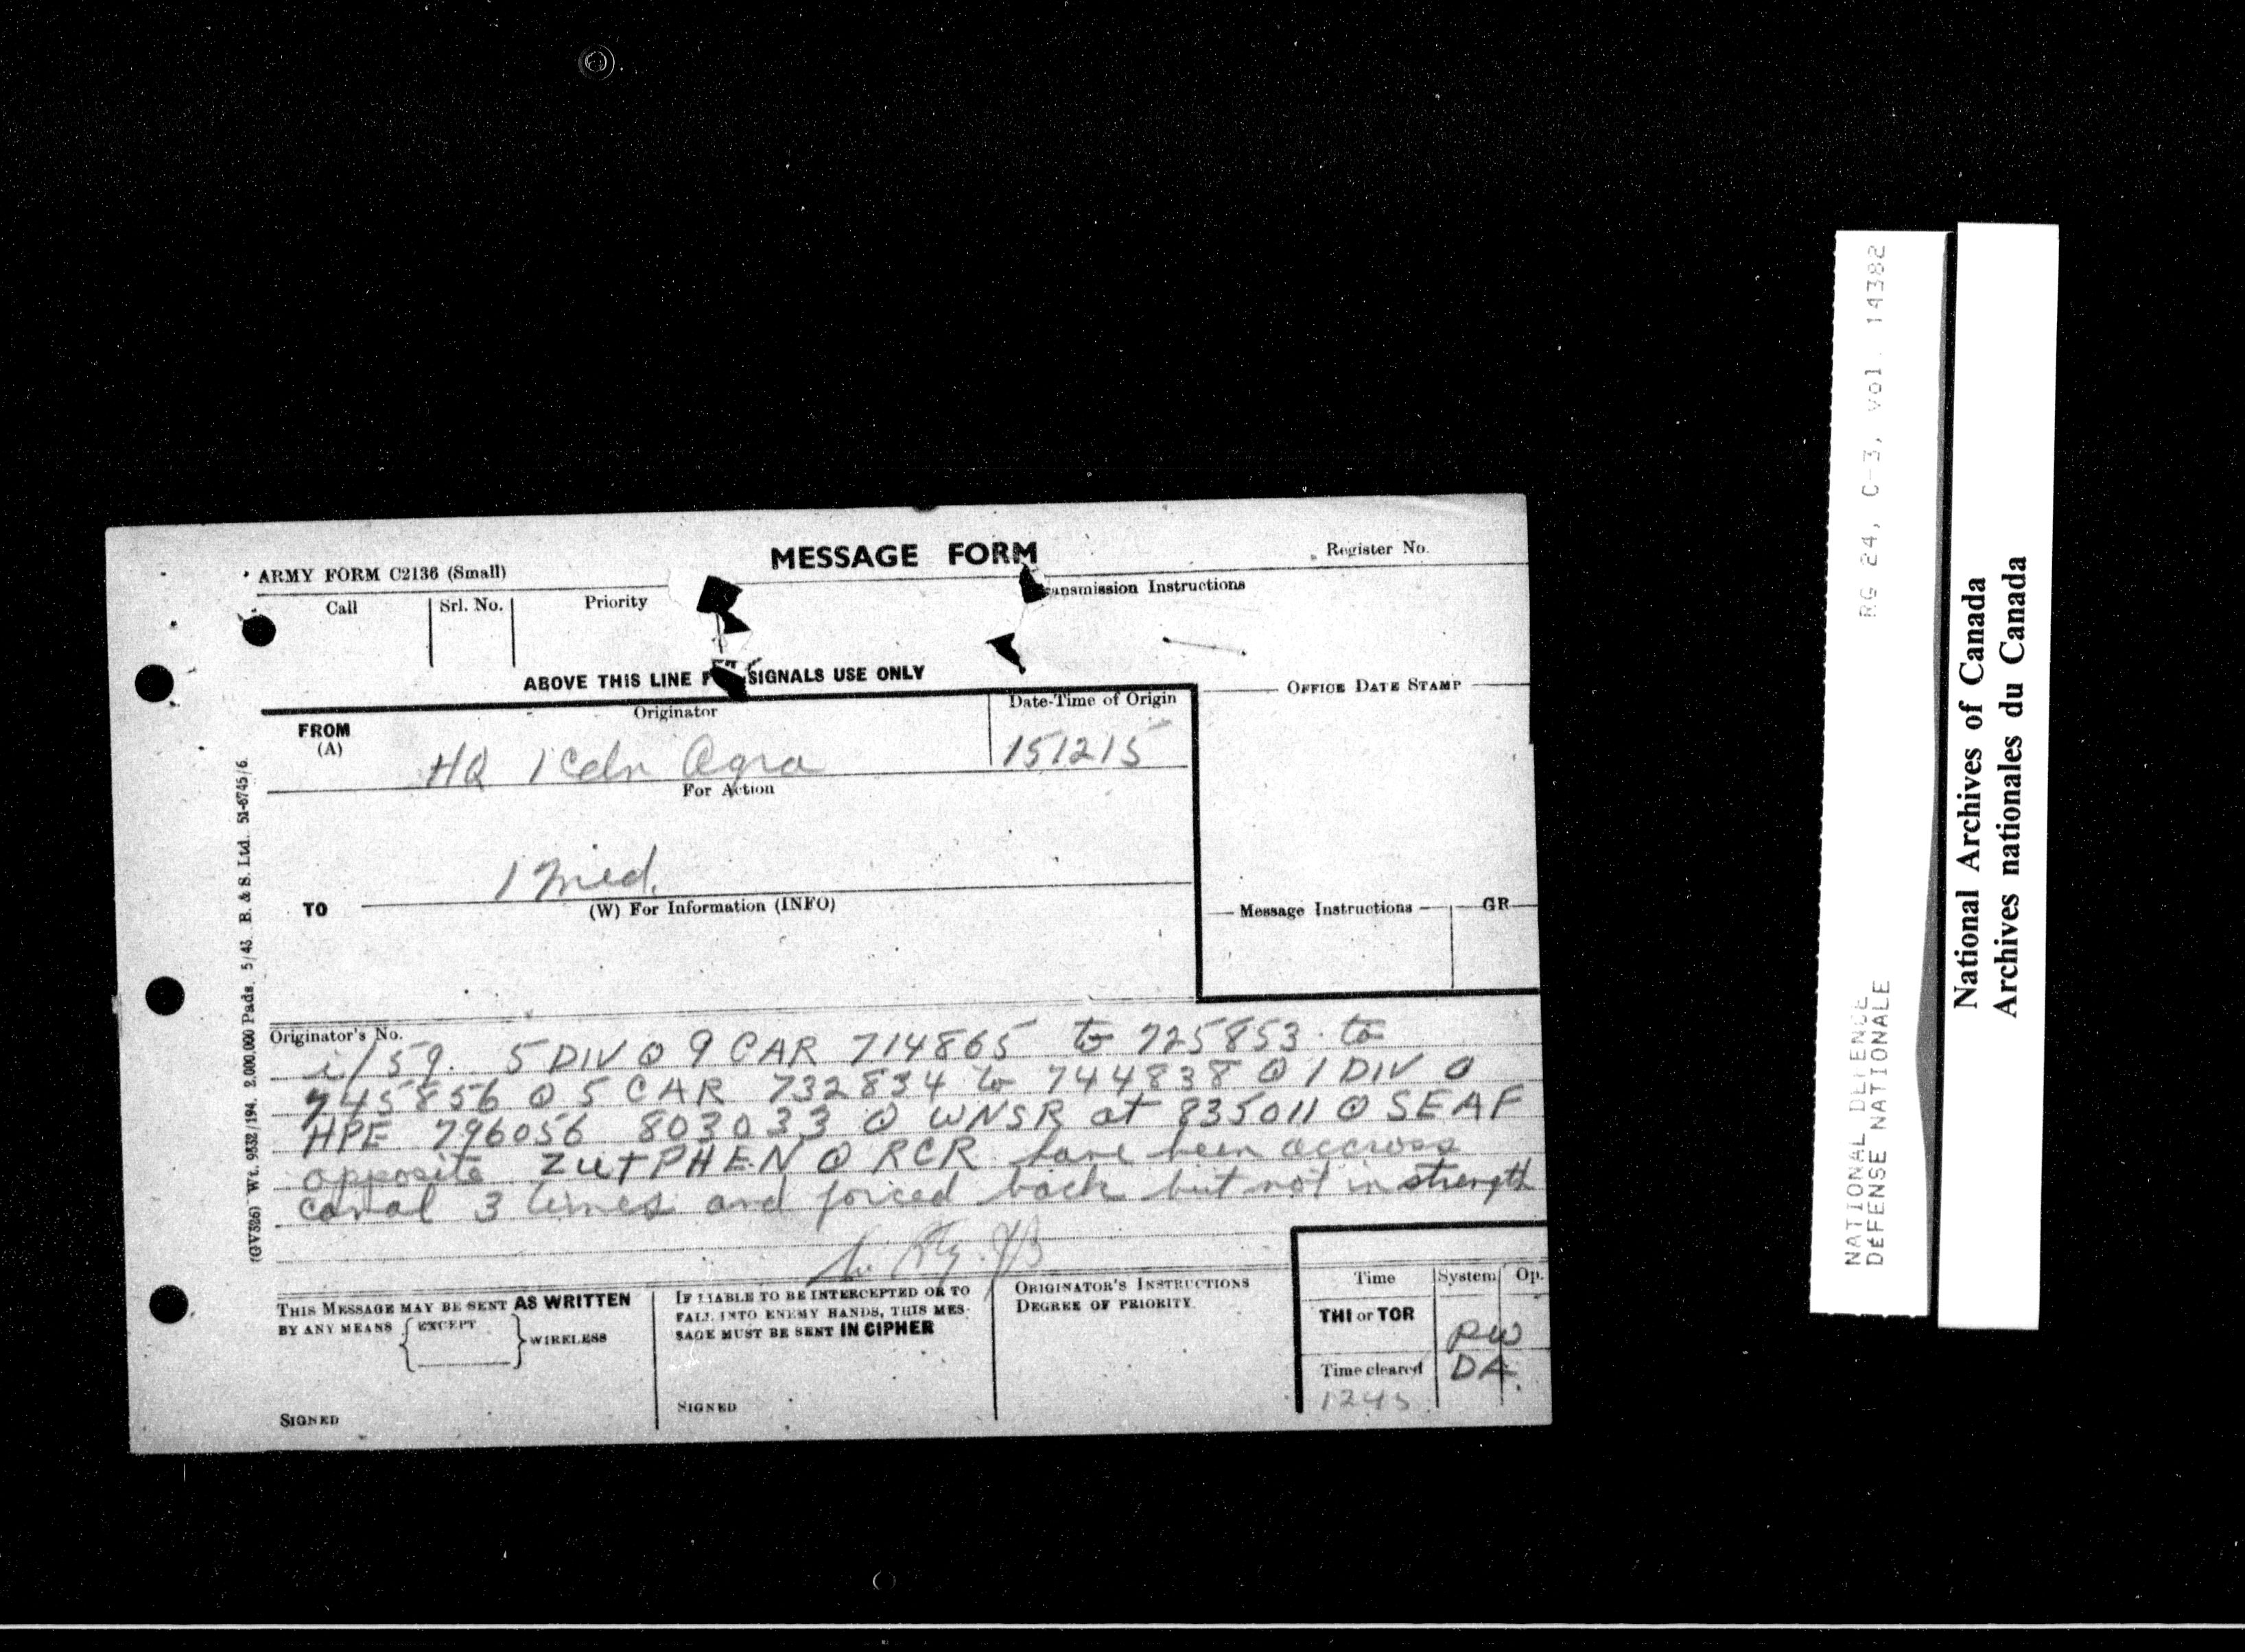 MESSAGE FORM
Register No.
ARMY FORM C2136 (Small)
Call Srl. No. Priority Transmission Instructions
ABOVE THIS LINE SIGNALS USE ONLY
OFFICE DATE STAMP
FROM (A) Originator Date-Time of Origin
HQ 1 Cdn Agra 151215
For Action
1 Med.
TO (W) For Information (INFO)
Message Instructions GR
Originator's No.
i/59. 5 DIV @ 9 CAR 714865 to 725853 to
745856 @ 5 CAR 732834 to 744838 @ 1 DIV @
HPE 796056 803033 @ WNSR at 835011 @ SEAF
opposite ZUTPHEN @ RCR have been accross
canal 3 times and forced back but not in strength
THIS MESSAGE MAY BE SENT AS WRITTEN
BY ANY MEANS EXCEPT WIRELESS
SIGNED
IF LIABLE TO BE INTERCEPTED OR TO
FALL INTO ENEMY HANDS, THIS MES-
SAGE MUST BE SENT IN CIPHER
SIGNED
ORIGINATOR'S INSTRUCTIONS
DEGREE OF PRIORITY
Time System Op.
THI or TOR
RW
Time cleared DA.
1245
(GV326) Wt. 9532/194. 2,000,000 Pads. 5/43 B. & S. Ltd. 51-6745/6
RG 24, C-3, vol. 14382
NATIONAL DEFENCE
DÉFENSE NATIONALE
National Archives of Canada
Archives nationales du Canada